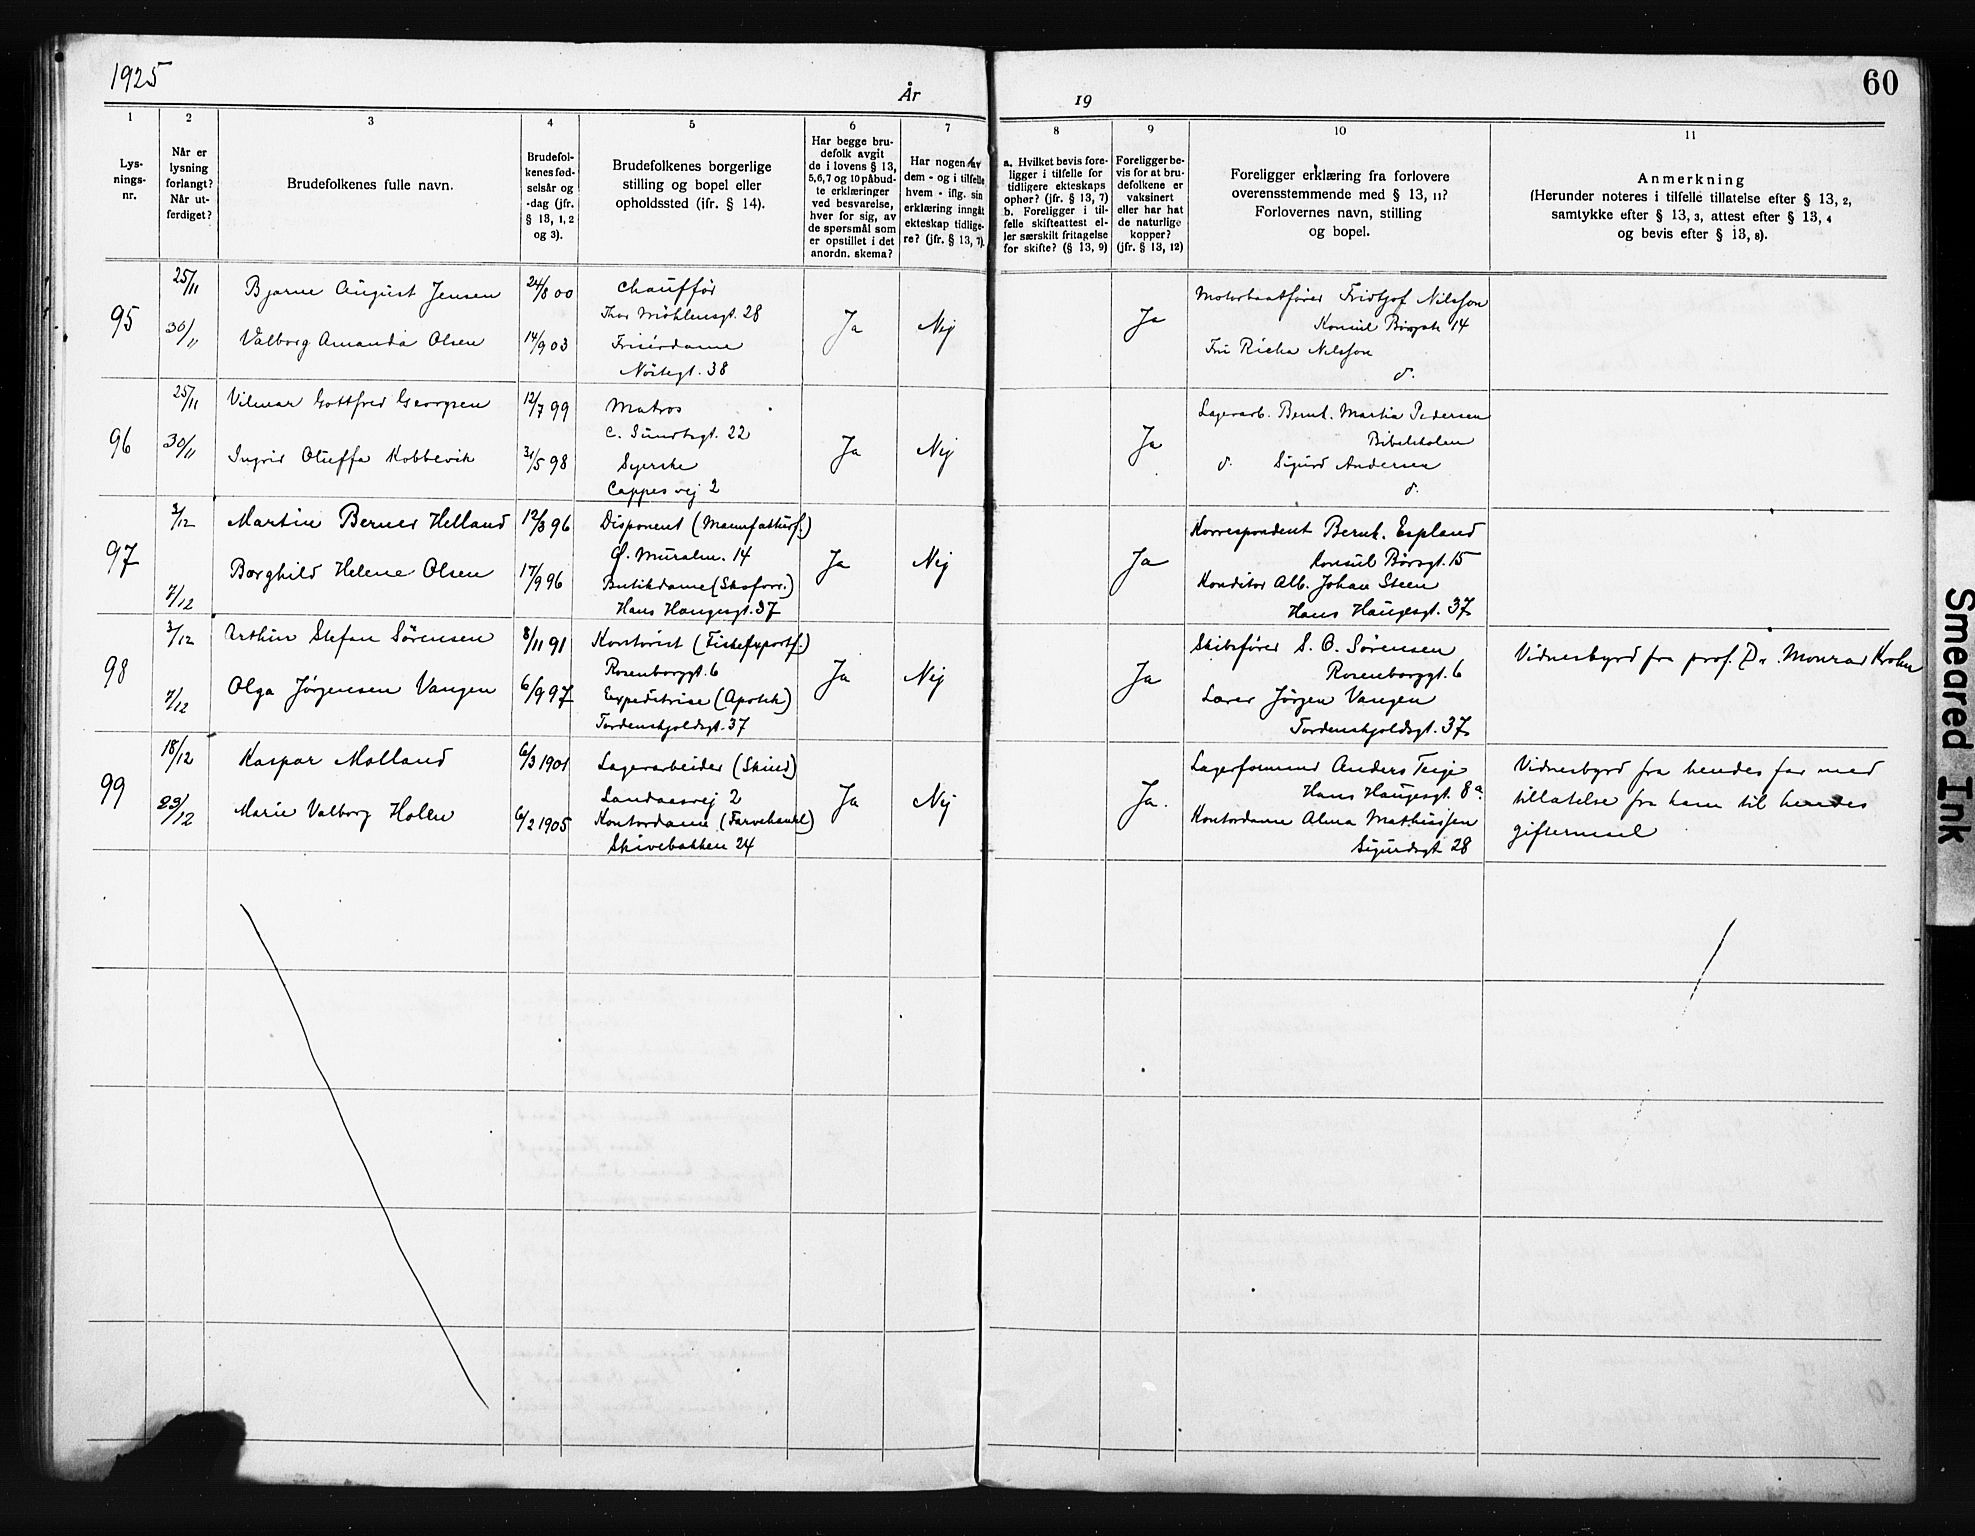 1925
År
19
60
1
2
3
4
5
6
7
8
9
10
11
Lys-
nings-
nr.
Når er
lysning
forlangt?
Når ut-
ferdiget?
Brudefolkenes fulle navn.
Brudefol-
kenes fød-
selsår og
-dag (jfr.
§ 13, 1, 2
og 3).
Brudefolkenes borgerlige
stilling og bopel eller
opholdssted (ifr. § 14).
Har begge bru-
defolk avgit
de i lovens § 13,
5,6,7 og 10 påbud-
te erklæringer
ved besvarelse,
hver for sig, av
de spørsmål som
er opstillet i det
anordn. skema?
Har nogen av
dem - og i tilfelle
hvem - iflg. sin
erklæring inngåt
ekteskap tidlige-
re? (jfr. § 13, 7).
a. Hvilket bevis fore-
ligger i tilfelle for
tidligere ekteskaps
ophør? (jfr. § 13, 7)
b. Foreligger i til-
felle skifteattest el-
ler særskilt fritagelse
for skifte? (§ 13, 9)
Foreligger be-
vis for at bru-
defolkene er
vaksinert
eller har hat
de naturlige
kopper?
(jfr. § 13, 12)
Foreligger erklæring fra forlovere
overensstemmende med § 13, 11?
Forlovernes navn, stilling
og bopel.
Anmerkning
(Herunder noteres i tilfelle tillatelse efter § 13, 2,
samtykke efter § 13, 3, attest efter § 13, 4
og bevis efter § 13, 8).
95
25/11
30/11
Bjarne August Jensen
Valborg Amanda Olsen
24/8 00
14/9 03
Chauffør
Thor Möhlensgt. 28
Frisørdame
Nöstegt. 38
Ja
Nej
Ja
Motorbaatfører Fridtjof Nilsson
Konsul Børsgt. 14
Fru Nilsson
d.
96
25/11
30/11
Vilmar Gottfred Georgsen
Ingrid Oluffa Kobbevik
12/7 99
31/5 98
Matros
C. Sundtsgt. 22
Syerske
Cappes vej 2
Ja
Nej
Ja
Lagerarb. Bernh. Martin Pedersen
Bibelskolen
d. Sigurd Andersen
d.
97
3/12
7/12
Martin Berner Helland
Borghild Helene Olsen
12/3 96
17/9 96
Disponent (Manufakturf.)
Gl. Muralm. 14
Butikdame (Skoforr.)
Hans Haugesgt. 37
Ja
Nej
Ja
Korrespondent Bernh. Espland
Konsul Børsgt. 15
Konditor Alb. Johan Steen
Hans Haugesgt. 37
98
3/12
7/12
Arthur Stefan Sörensen
Olga Jørgensen Vangen
8/11 91
6/9 97
Kontorist (Fiskeexportf.)
Rosenborggt. 6
Expeditrise (Apotek)
Tordenskjoldsgt. 37
Ja
Nej
Ja
Skibsfører S. O. Sörensen
Rosenborggt. 6
Lærer Jörgen Vangen
Tordenskjoldsgt. 37
Vidnesbyrd fra prof. Dr. Monrad Krohn
99
18/12
29/12
Kaspar Molland
Marie Valborg Holen
6/3 1901
6/2 1905
Lagerarbeider (Skind)
Landaasvej 2
Kontordame (Farvehandel)
Skivebakken 24
Ja
Nej
Ja.
Lagerformand Anders Terje
Hans Haugesgt. 8a.
Kontordame Alma Mathiassen
Sigurdsgt 28
Vidnesbyrd fra hendes far med
tillatelse fra ham til hendes
giftermaal
Smeared Ink